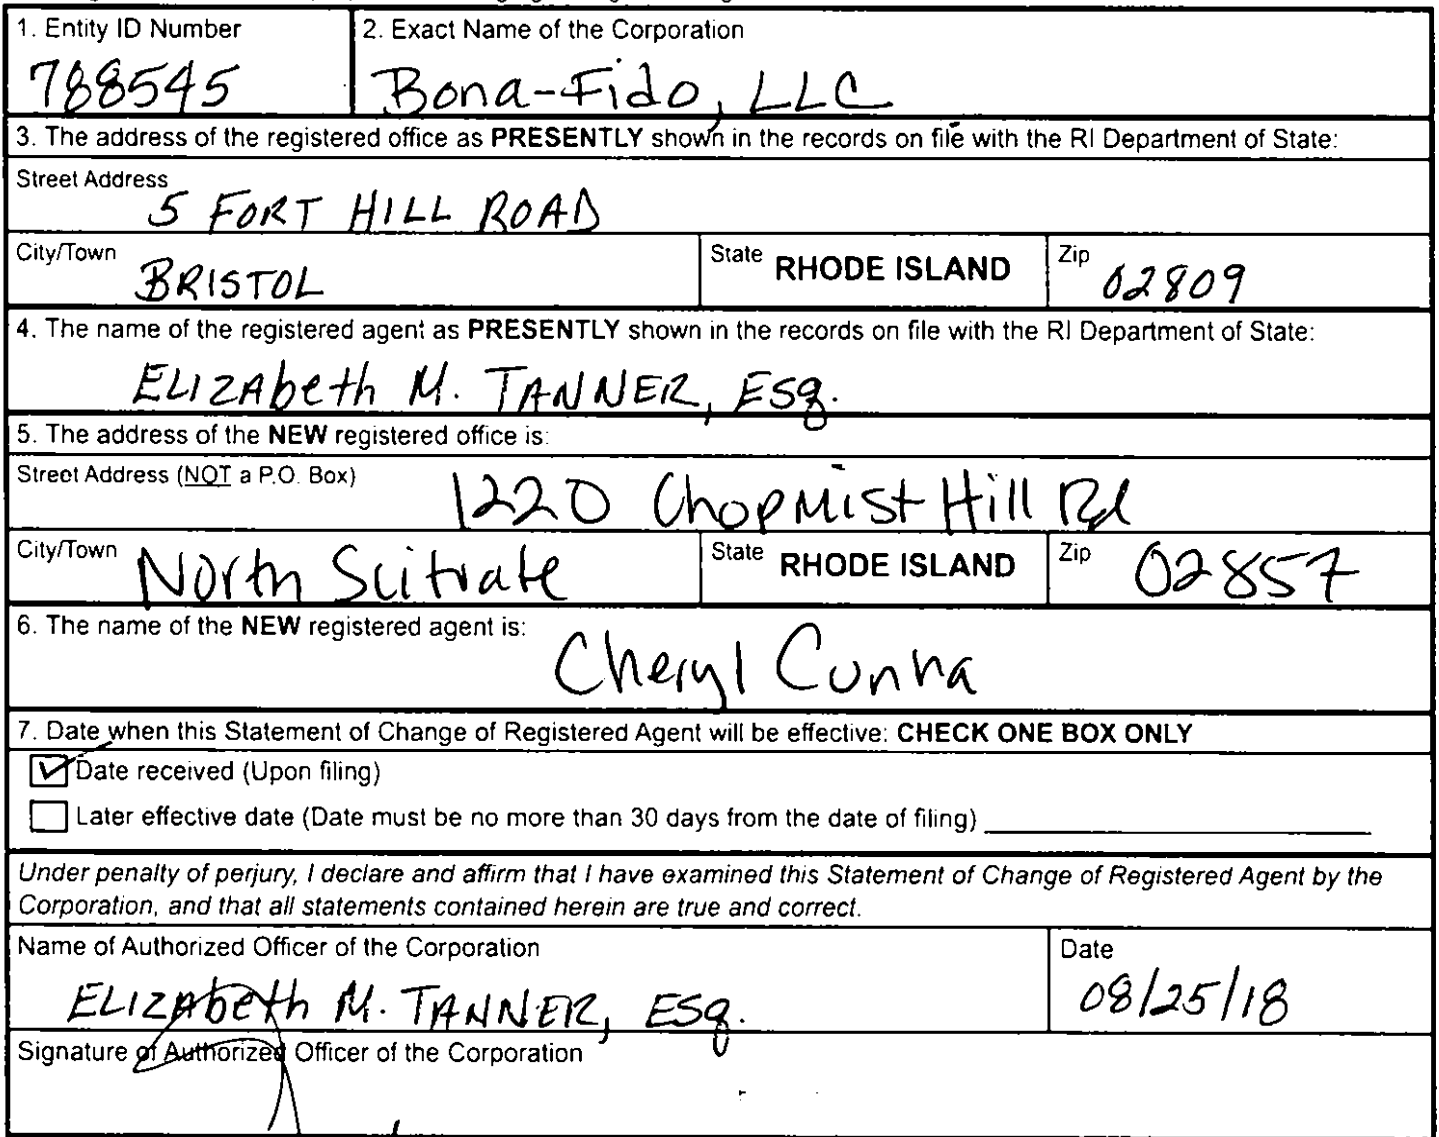 1. Entity ID Number
788545
2. Exact Name of the Corporation
Bona-Fido, LLC
3. The address of the registered office as PRESENTLY shown in the records on file with the RI Department of State:
Street Address
5 FORT HILL ROAD
City/Town
BRISTOL
State RHODE ISLAND
Zip 02809
4. The name of the registered agent as PRESENTLY shown in the records on file with the RI Department of State:
ELIZAbeth M. TANNER, ESq.
5. The address of the NEW registered office is:
Street Address (NOT a P.O. Box)
1220 Chopmist Hill Rd
City/Town
North Scitrate
State RHODE ISLAND
Zip 02857
6. The name of the NEW registered agent is:
Cheryl Cunha
7. Date when this Statement of Change of Registered Agent will be effective: CHECK ONE BOX ONLY
Date received (Upon filing)
Later effective date (Date must be no more than 30 days from the date of filing)
Under penalty of perjury, I declare and affirm that I have examined this Statement of Change of Registered Agent by the
Corporation, and that all statements contained herein are true and correct.
Name of Authorized Officer of the Corporation
ELIZAbeth M. TANNER, ESq.
Date
08/25/18
Signature of Authorized Officer of the Corporation